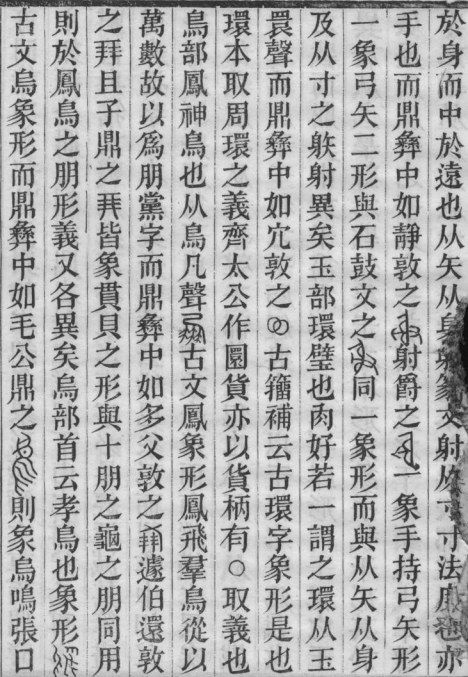 於身而中於遠也从矢从身篆文射从寸寸法度也亦
手也而鼎彝中如静敦之射爵之一象手持弓矢形
一象弓矢二形與石鼓文之同一象形而與从矢从身
及从寸之躲射異矣玉部環璧也肉好若一謂之環从玉
睘聲而鼎彝中如宂敦之古籀補云古環字象形是也
環本取周環之義齊太公作圜貨亦以貨柄有○取義也
鳥部鳳神鳥也从鳥凡聲古文鳳象形鳳飛羣鳥從以
萬數故以爲朋黨字而鼎彝中如多父敦之遽伯還敦
之且子鼎之皆象貫貝之形與十朋之龜之朋同用
則於鳳鳥之朋形義又各異矣烏部首云孝鳥也象形
古文烏象形而鼎彝中如毛公鼎之則象烏鳴張口